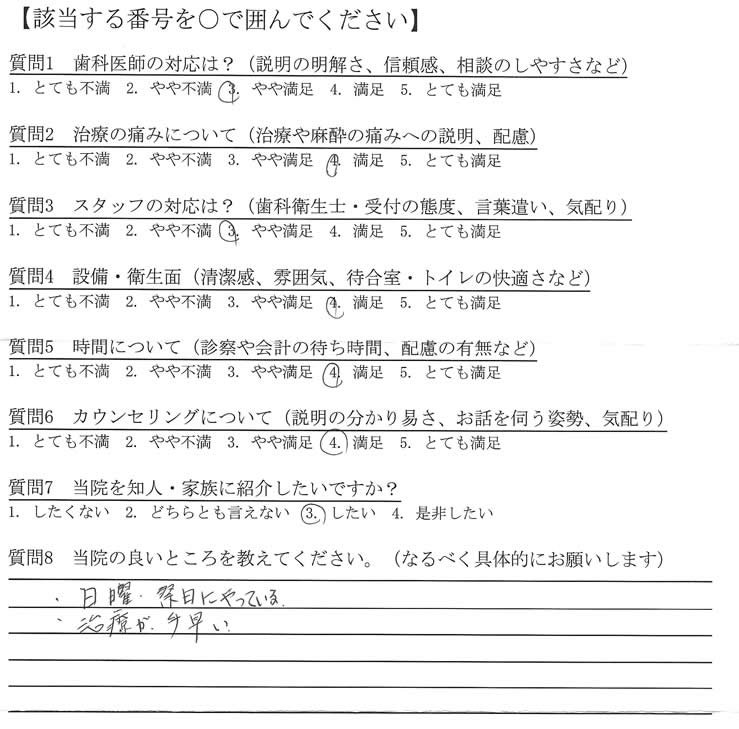 【該当する番号を○で囲んでください】
質問1 歯科医師の対応は？（説明の明解さ、信頼感、相談のしやすさなど）
1. とても不満 2. やや不満 3. やや満足 4. 満足 5. とても満足
質問2 治療の痛みについて（治療や麻酔の痛みへの説明、配慮）
1. とても不満 2. やや不満 3. やや満足 4. 満足 5. とても満足
質問3 スタッフの対応は？（歯科衛生士・受付の態度、言葉遣い、気配り）
1. とても不満 2. やや不満 3. やや満足 4. 満足 5. とても満足
質問4 設備・衛生面（清潔感、雰囲気、待合室・トイレの快適さなど）
1. とても不満 2. やや不満 3. やや満足 4. 満足 5. とても満足
質問5 時間について（診察や会計の待ち時間、配慮の有無など）
1. とても不満 2. やや不満 3. やや満足 4. 満足 5. とても満足
質問6 カウンセリングについて（説明の分かり易さ、お話を伺う姿勢、気配り）
1. とても不満 2. やや不満 3. やや満足 4. 満足 5. とても満足
質問7 当院を知人・家族に紹介したいですか？
1. したくない 2. どちらとも言えない 3. したい 4. 是非したい
質問8 当院の良いところを教えてください。（なるべく具体的にお願いします）
・日曜・祭日にやっている。
・治療が手早い